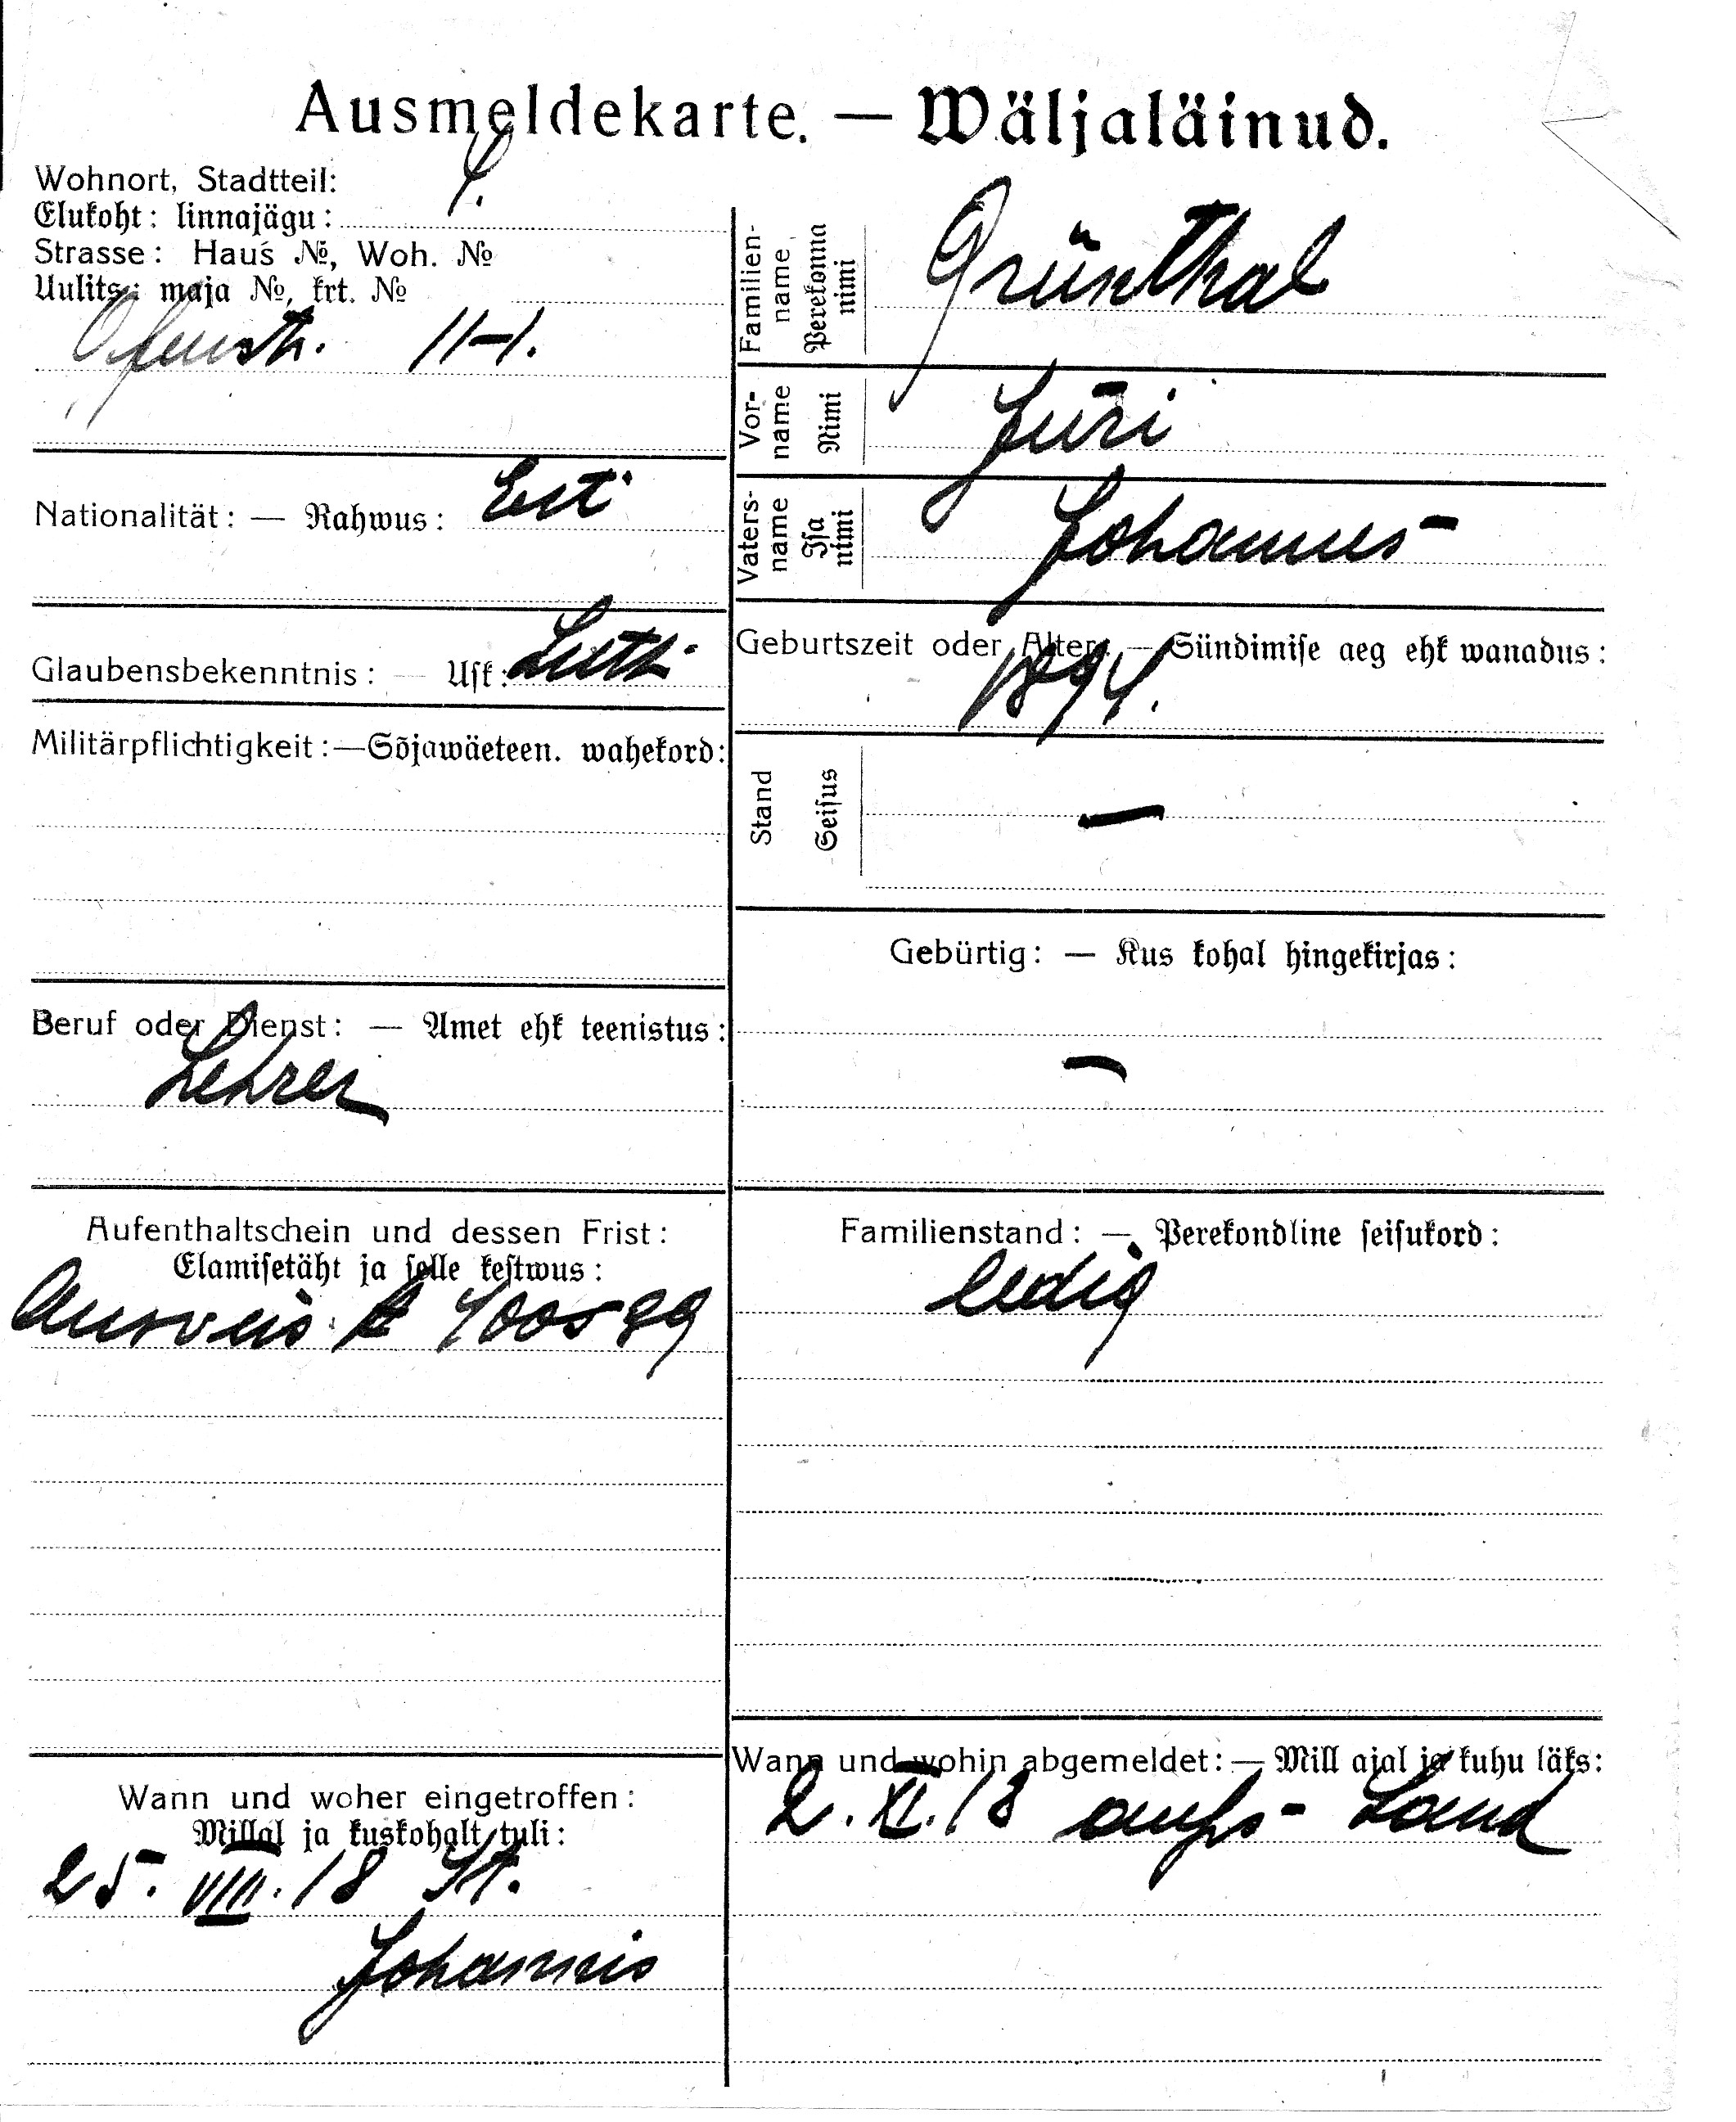 Ausmeldekarte. — Wäljaläinud.
Wohnort, Stadtteil:
Elukoht: linnajägu:
Strasse: Haus №, Woh. №
Uulits: maja №, krt. №
11-1.
Nationalität: — Rahwus: Est.
Glaubensbekenntnis: — Usk: Luth.
Militärpflichtigkeit: — Sõjawäeteen. wahekord:
Beruf oder Dienst: — Amet ehk teenistus:
Lehrer
Aufenthaltschein und dessen Frist:
Elamisetäht ja selle kestwus:
Ausweis A
Wann und woher eingetroffen:
Millal ja kuskohalt tuli:
25. VIII. 18 St.
Johannis
Familien-name Perekonna nimi Grünthal
Vor-name Nimi Jüri
Vaters-name Isa nimi Johannes
Geburtszeit oder Alter: — Sündimise aeg ehk wanadus:
1894.
Stand Seisus —
Gebürtig: — Kus kohal hingekirjas:
—
Familienstand: — Perekondline seisukord:
ledig
Wann und wohin abgemeldet: — Mill ajal ja kuhu läks:
2. XI. 18 aufs Land